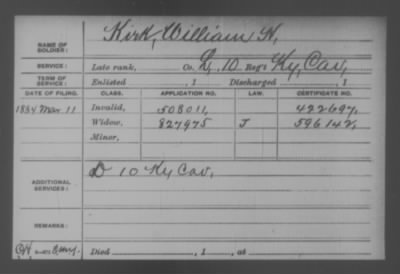 NAME OF SOLDIER: Kirk, William H.
SERVICE: Late rank, Co. L, 10 Reg't Ky, Cav,
TERM OF SERVICE: Enlisted , 1 Discharged , 1
DATE OF FILING. CLASS. APPLICATION NO. LAW. CERTIFICATE NO.
1884 Mar 11 Invalid, 508011, 422697,
Widow, 827975 J 596142,
Minor,
ADDITIONAL SERVICES: D 10 Ky Cav,
REMARKS:
Died , 1 , at